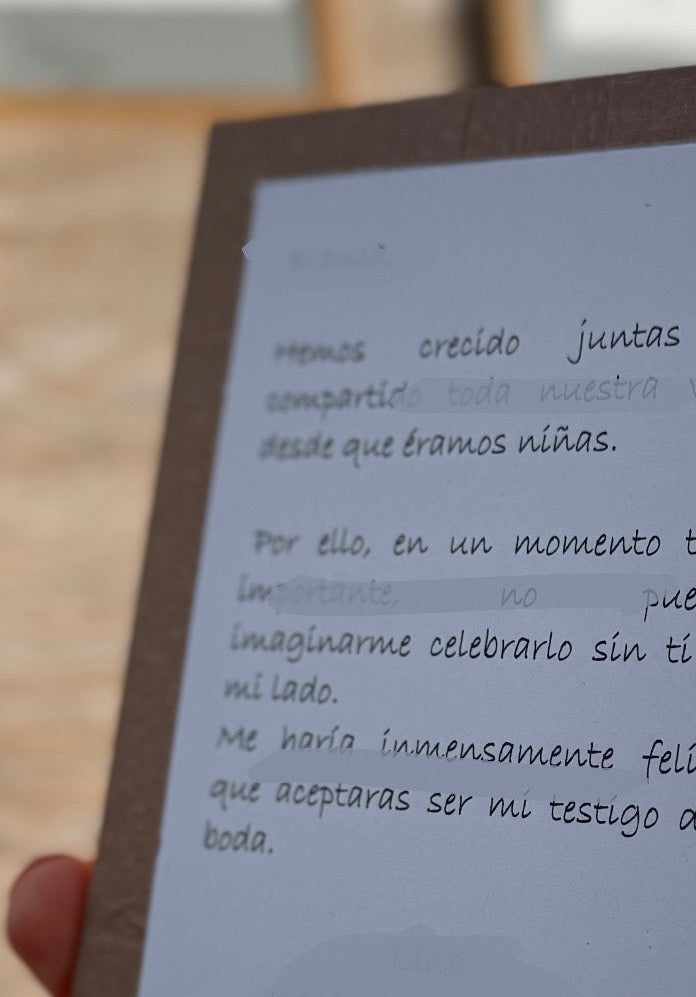 Hemos crecido juntas
compartido toda nuestra
desde que éramos niñas.
Por ello, en un momento
importante, no
imaginarme celebrarlo sin ti
mi lado.
Me haría inmensamente
que aceptaras ser mi testigo
boda.
Lina